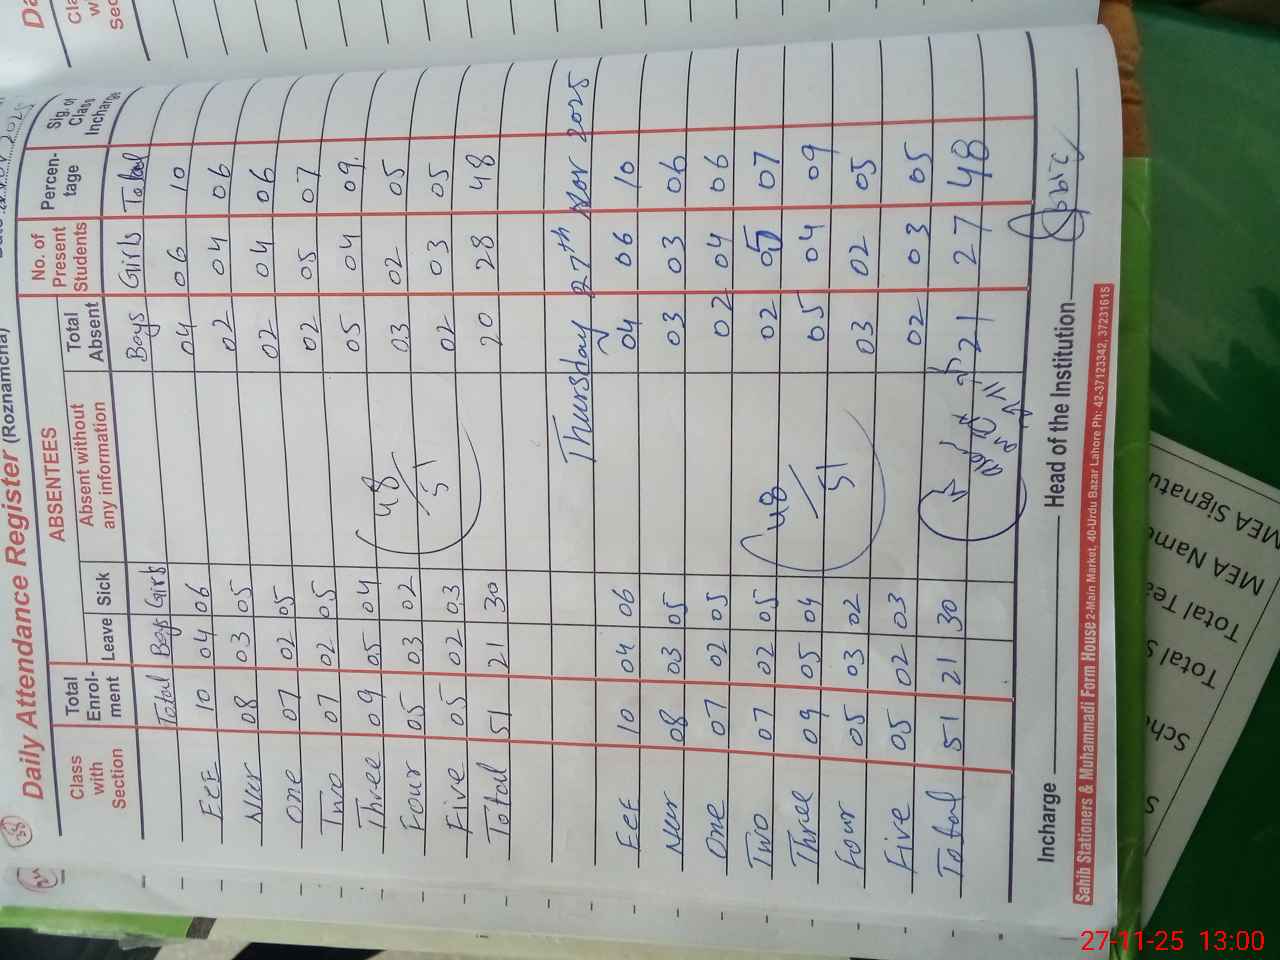 Daily Attendance Register (Roznamcha)
2025
Class with Section | Total Enrol-ment | ABSENTEES | No. of Present Students | Percen-tage | Sig. of Class Incharge
Leave | Sick | Absent without any information | Total Absent
Total Boys Girls Boys Girls Total
ECE 10 04 06 04 06 10
Nur 08 03 05 02 04 06
One 07 02 05 02 04 06
Two 07 02 05 02 05 07
Three 09 05 04 05 04 09.
Four 05 03 02 03 02 05
Five 05 02 03 02 03 05
Total 51 21 30 20 28 48
48/51
Thursday 27th Nov 2025
ECE 10 04 06 04 06 10
Nur 08 03 05 03 03 06
One 07 02 05 02 04 06
Two 07 02 05 02 05 07
Three 09 05 04 05 04 09
Four 05 03 02 03 02 05
Five 05 02 03 02 03 05
Total 51 21 30 21 27 48
48/51
Incharge
Head of the Institution
Sahib Stationers & Muhammadi Form House 2-Main Market, 40-Urdu Bazar Lahore Ph: 42-37123342, 37231615
MEA Signatu
MEA Name
Total Tea
Total S
Scho
27-11-25 13:00